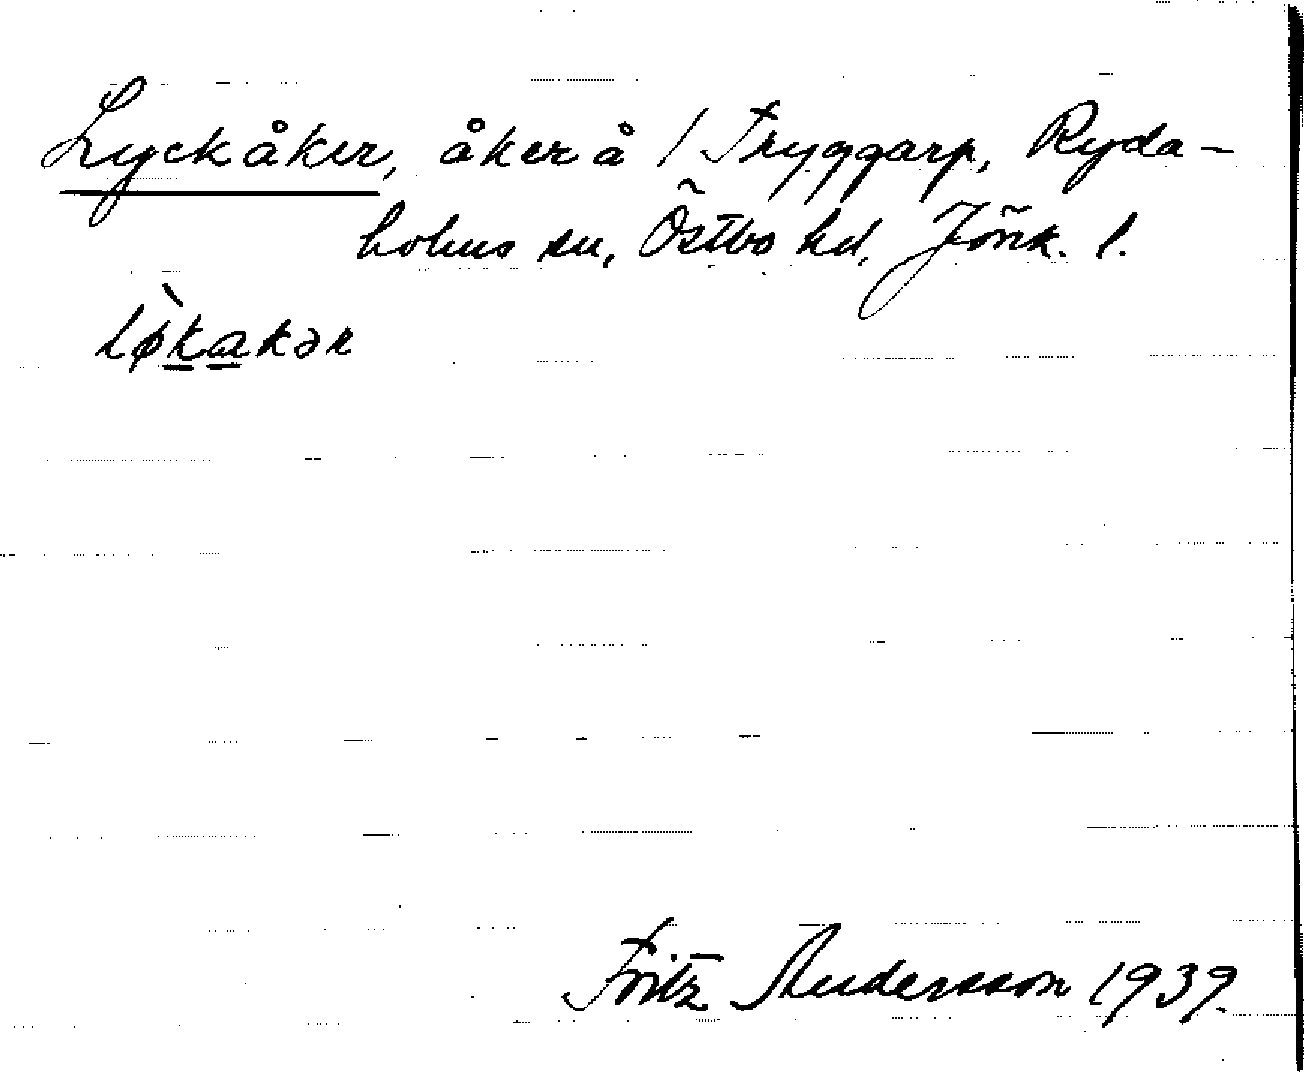 Lyckåker, åker å 1 Tryggarp, Ryda-
holms sn, Östbo hd, Jönk. l.
løkakər
Fritz Andersson 1939.